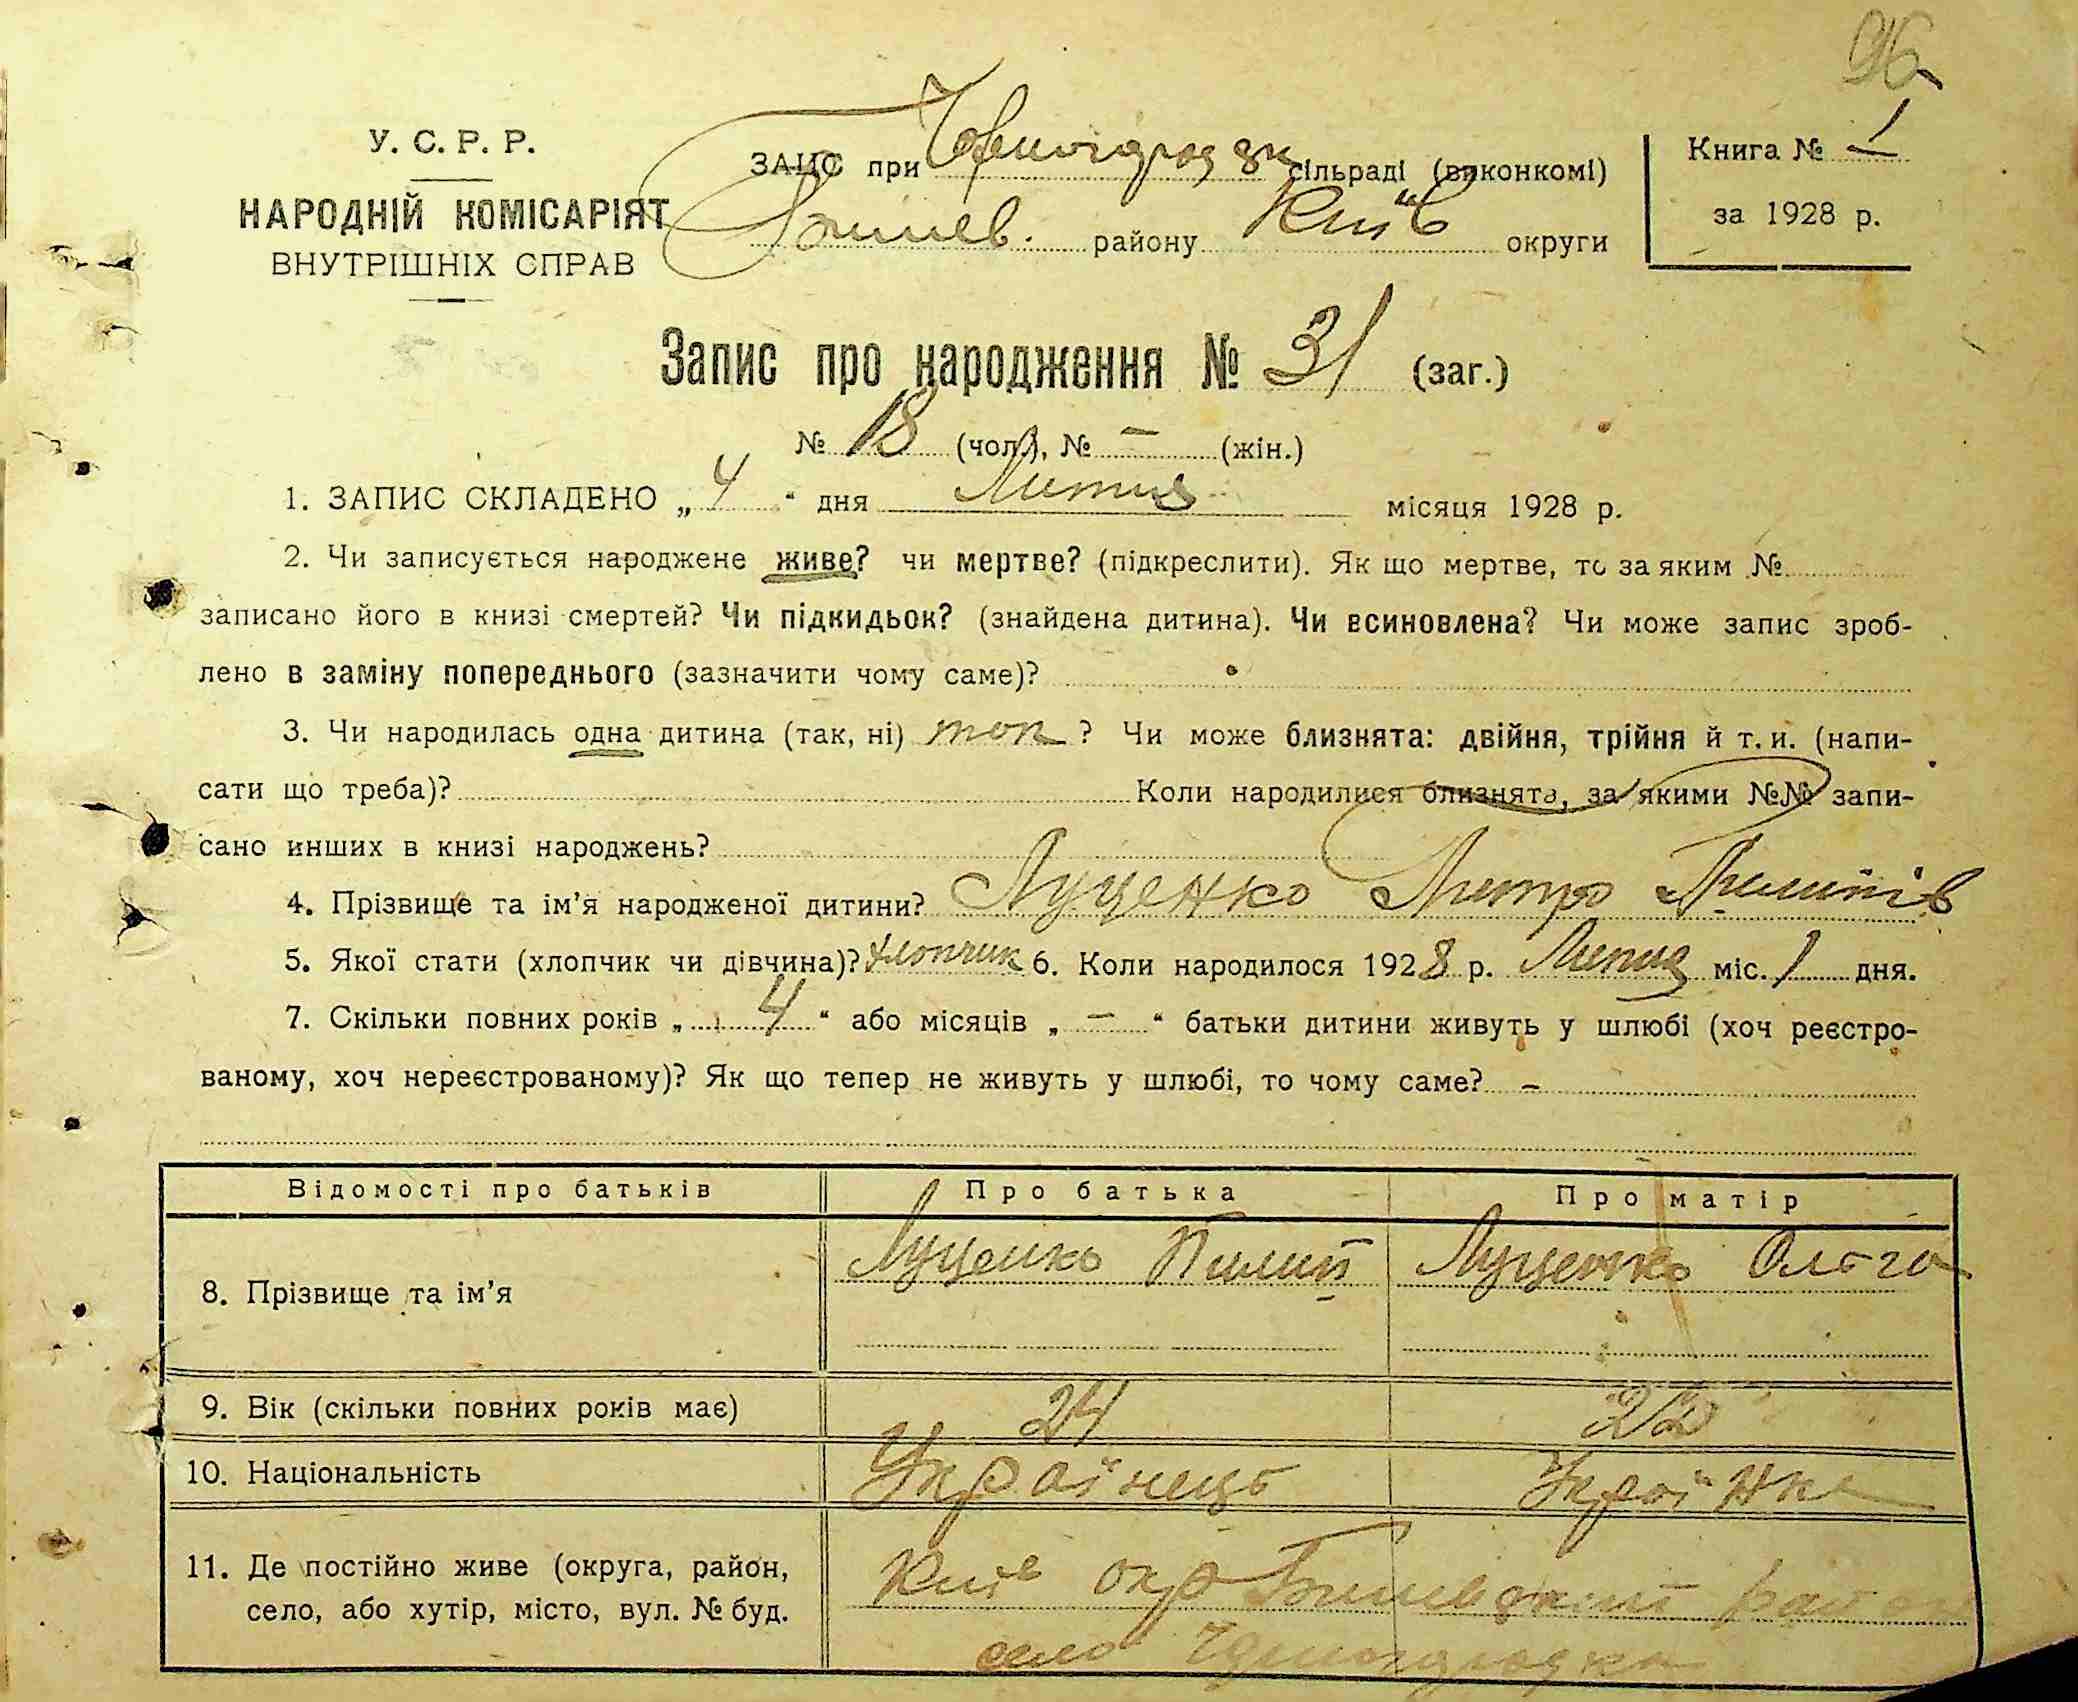 96
У. С. Р. Р.
НАРОДНІЙ КОМІСАРІЯТ
ВНУТРІШНІХ СПРАВ
ЗАЦС при Чорногородськ сільраді (виконкомі)
Бишев. району Київ округи
Книга № 1
за 1928 р.
Запис про народження № 31 (заг.)
№ 18 (чол.), № — (жін.)
1. ЗАПИС СКЛАДЕНО „4“ дня Липня місяця 1928 р.
2. Чи записується народжене живе? чи мертве? (підкреслити). Як що мертве, то за яким №
записано його в книзі смертей? Чи підкидьок? (знайдена дитина). Чи всиновлена? Чи може запис зроб-
лено в заміну попереднього (зазначити чому саме)?
3. Чи народилась одна дитина (так, ні) так? Чи може близнята: двійня, трійня й т. и. (напи-
сати що треба)? Коли народилися близнята, за якими №№ запи-
сано инших в книзі народжень?
4. Прізвище та ім’я народженої дитини? Луценко Дмитро Пилипів
5. Якої стати (хлопчик чи дівчина)? Хлопчик 6. Коли народилося 1928 р. Липня міс. 1 дня.
7. Скільки повних років „4“ або місяців „—“ батьки дитини живуть у шлюбі (хоч реєстро-
ваному, хоч нереєстрованому)? Як що тепер не живуть у шлюбі, то чому саме? –
Відомості про батьків Про батька Про матір
8. Прізвище та ім’я Луценко Пилип Луценко Ольга
9. Вік (скільки повних років має) 24 22
10. Національність Українець Українка
11. Де постійно живе (округа, район, Київ окр Бишевский район
село, або хутір, місто, вул. № буд. село